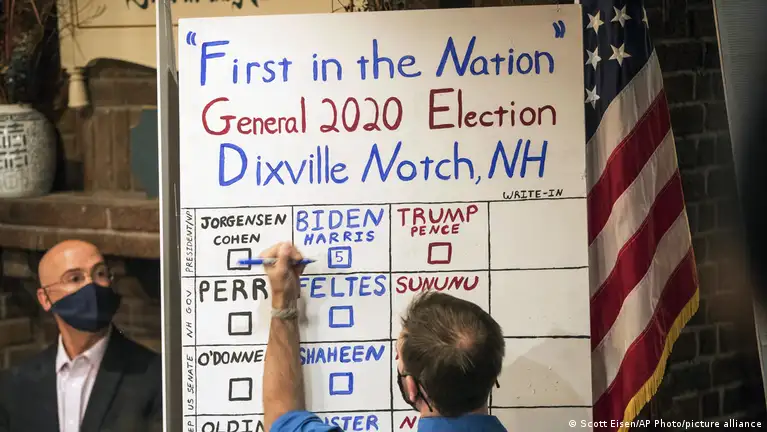 "First in the Nation"
General 2020 Election
Dixville Notch, NH
WRITE-IN
PRESIDENT/VP
JORGENSEN COHEN
BIDEN HARRIS
5
TRUMP PENCE
NH GOV
PERR
FELTES
SUNUNU
US SENATE
O'DONNE
SHAHEEN
EP
OLDIN
USTER
N
© Scott Eisen/AP Photo/picture alliance